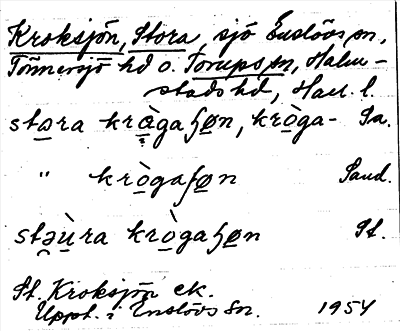 Kroksjön, Stora, sjö Enslövs sn,
Tönnersjö hd o. Torups sn, Halm-
stads hd, Hall. l.
stɷra krɷ̀gaʃøn, krɷ̀ga- Sa.
" krɷ̀gaʃøn Sand.
stəu̇̀ra krɷ̀gaʃøn St.
St. Kroksjön ek.
Uppt. i Enslövs sn. 1954